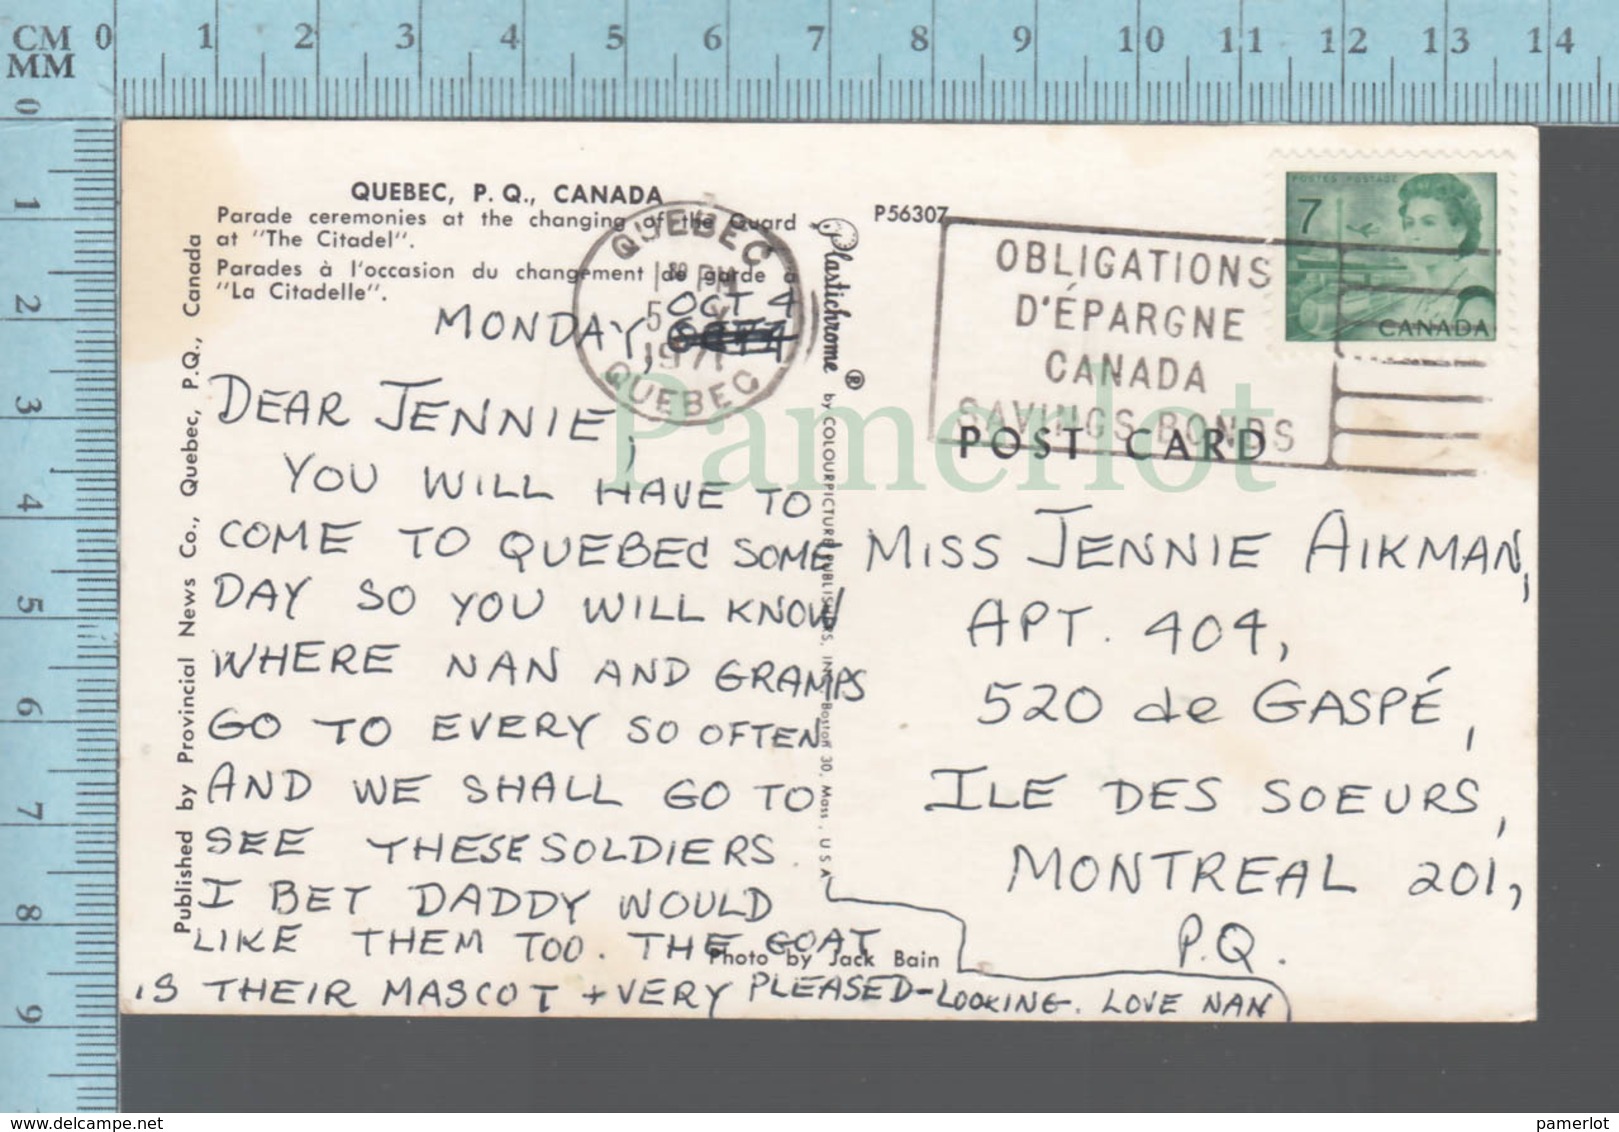 CM 0 1 2 3 4 5 6 7 8 9 10 11 12 13 14
MM
0 1 2 3 4 5 6 7 8 9
QUEBEC, P. Q., CANADA
Parade ceremonies at the changing of the Guard
at "The Citadel".
Parades à l'occasion du changement de garde à
"La Citadelle".
MONDAY, OCT 4
DEAR JENNIE,
YOU WILL HAVE TO
COME TO QUEBEC SOME
DAY SO YOU WILL KNOW
WHERE NAN AND GRAMPS
GO TO EVERY SO OFTEN
AND WE SHALL GO TO
SEE THESE SOLDIERS.
I BET DADDY WOULD
LIKE THEM TOO. THE GOAT
IS THEIR MASCOT + VERY PLEASED-LOOKING. LOVE NAN
Published by Provincial News Co., Quebec, P.Q., Canada
Plastichrome ® by COLOURPICTURE PUBLISHERS, INC., Boston 30, Mass., U S A
Photo by Jack Bain
QUEBEC
1 30 PM
5 X
1971
QUEBEC
P56307
OBLIGATIONS
D'ÉPARGNE
CANADA
SAVINGS BONDS
POSTES POSTAGE
7
CANADA
POST CARD
MISS JENNIE AIKMAN,
APT. 404,
520 de GASPÉ,
ILE DES SOEURS,
MONTREAL 201,
P.Q.
Pamerlot
www.delcampe.net
pamerlot